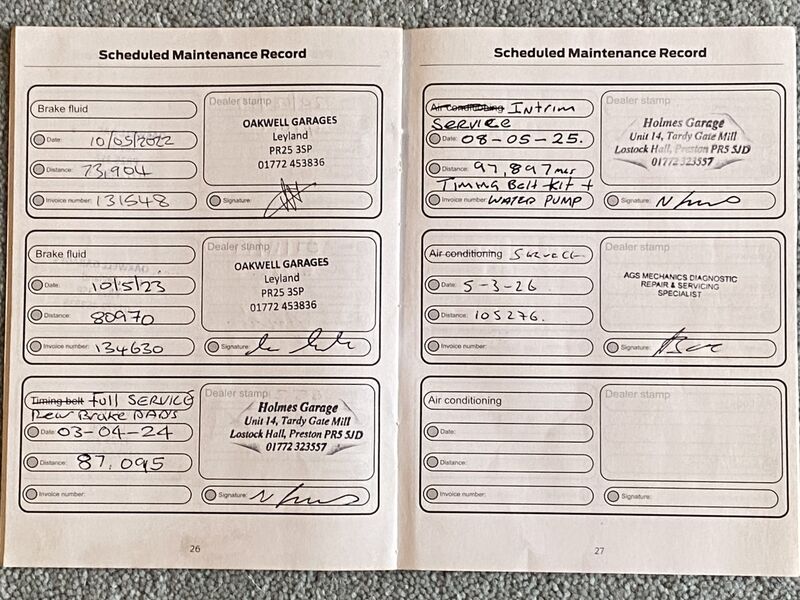 Scheduled Maintenance Record
Brake fluid
Date: 10/05/2022
Distance: 73,904
Invoice number: 131548
Dealer stamp
OAKWELL GARAGES
Leyland
PR25 3SP
01772 453836
Signature:
Brake fluid
Date: 10/5/23
Distance: 80970
Invoice number: 134630
Dealer stamp
OAKWELL GARAGES
Leyland
PR25 3SP
01772 453836
Signature:
Timing belt FULL SERVICE
Rear Brake PADS
Date: 03-04-24
Distance: 87,095
Invoice number:
Dealer stamp
Holmes Garage
Unit 14, Tardy Gate Mill
Lostock Hall, Preston PR5 5JD
01772 323557
Signature:
26
Scheduled Maintenance Record
Air conditioning Intrim
SERVICE
Date: 08-05-25.
Distance: 97,897 mls
Timing Belt Kit +
Invoice number: WATER PUMP
Dealer stamp
Holmes Garage
Unit 14, Tardy Gate Mill
Lostock Hall, Preston PR5 5JD
01772 323557
Signature:
Air conditioning Service
Date: 5-3-26.
Distance: 105276.
Invoice number:
Dealer stamp
AGS MECHANICS DIAGNOSTIC
REPAIR & SERVICING
SPECIALIST
Signature:
Air conditioning
Date:
Distance:
Invoice number:
Dealer stamp
Signature:
27